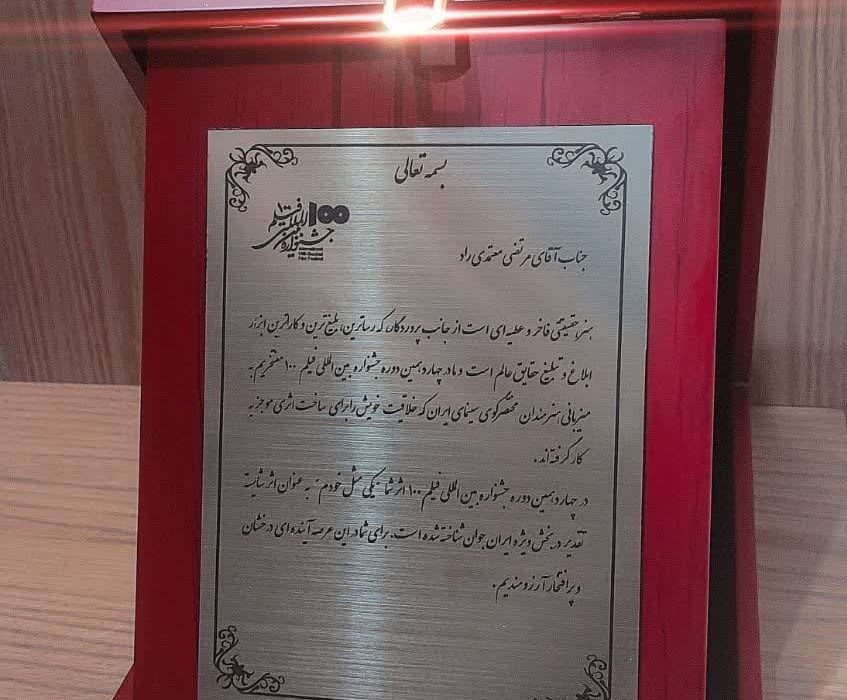 بسمه تعالی
100
جشنواره بین‌المللی فیلم ۱۰۰
International
100-Second
Film Festival
جناب آقای مرتضی معتمدی راد
هنر، حقیقتی فاخر و عطیه‌ای است از جانب پروردگار، که رساترین، بلیغ‌ترین و کاراترین ابزار
ابلاغ و تبلیغ حقایق عالم است و ما در چهاردهمین دوره جشنواره بین‌المللی فیلم ۱۰۰ مفتخریم به
میزبانی هنرمندان مختصرگوی سینمای ایران که خلاقیت خویش را برای ساخت اثری موجز به
کار گرفته‌اند.
در چهاردهمین دوره جشنواره بین‌المللی فیلم ۱۰۰ اثر شما "یکی مثل خودم" به عنوان اثر شایسته
تقدیر در بخش ویژه ایران جوان شناخته شده است. برای شما در این عرصه آینده‌ای درخشان
و پر افتخار آرزومندیم.